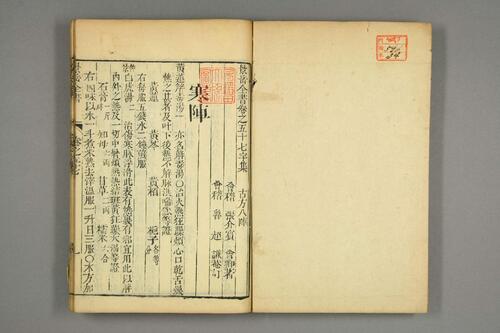 景岳全書卷之五十七字集　古方八陣
會稽　張介賓　會卿著
會稽　魯　超　謙菴訂
寒陣
黃連解毒湯一　亦名解毒湯○治火熱狂躁煩心口乾舌燥
熱之甚者及吐下後熱不解脉洪喘急等證
黃連　黃芩　黃栢　梔子各等分
右每服五錢水二鍾煎服
白虎湯二　治傷寒脉浮滑此表有熱裏有邪宜用此以解
內外之熱及一切中暑煩熱熱結斑黃狂躁大渴等證
石膏　知母　甘草　糯米
右四味以水一斗煮米熟去滓温服一升日三服○本方加